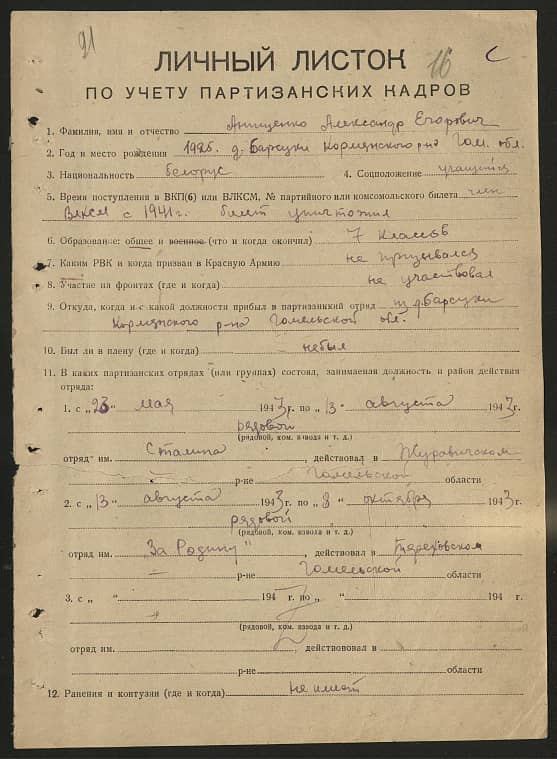 91
16 С
ЛИЧНЫЙ ЛИСТОК
ПО УЧЕТУ ПАРТИЗАНСКИХ КАДРОВ
1. Фамилия, имя и отчество Анищенко Александр Егорович
2. Год и место рождения 1925. д. Барсуки Кормянского р-на Гом. обл.
3. Национальность белорус 4. Соцположение учащийся
5. Время поступления в ВКП(б) или ВЛКСМ, № партийного или комсомольского билета член
ВЛКСМ с 1941 г. билет уничтожил
6. Образование: общее и военное (что и когда окончил) 7 классов
7. Каким РВК и когда призван в Красную Армию не призывался
8. Участие на фронтах (где и когда) не участвовал
9. Откуда, когда и с какой должности прибыл в партизанский отряд из д. Барсуки
Кормянского р-на Гомельской обл.
10. Был ли в плену (где и когда) небыл
11. В каких партизанских отрядах (или группах) состоял, занимаемая должность и район действия
отряда:
1. с „23" мая 1943 г. по „13" августа 1943 г.
рядовой
(рядовой, ком. взвода и т. д.)
отряд им. Сталина, действовал в Журавичском
р-не Гомельской области
2. с „13" августа 1943 г. по „8" октября 1943 г.
рядовой
(рядовой, ком. взвода и т. д.)
отряд им. „За Родину", действовал в Тереховском
р-не Гомельской области
3. с „ " 194 г. по „ " 194 г.
(рядовой, ком. взвода и т. д.)
отряд им. , действововал в
р-не области
12. Ранения и контузии (где и когда) не имеет